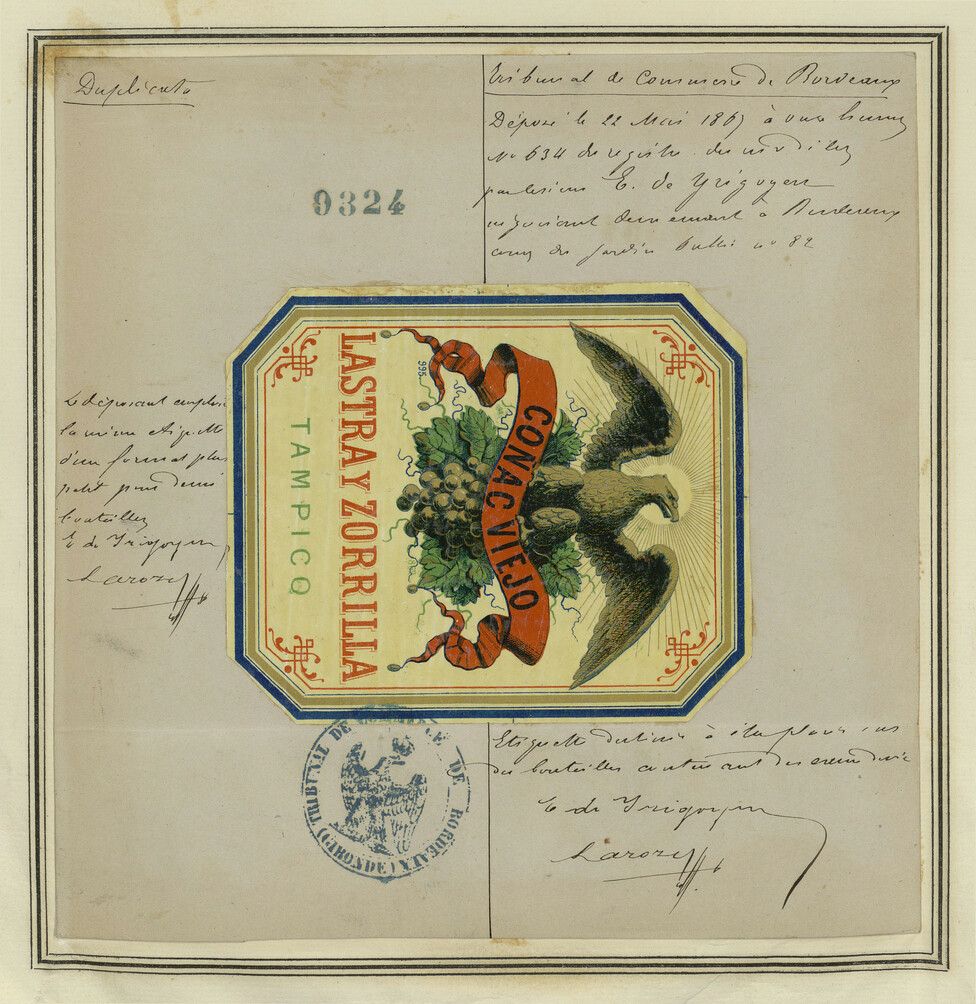 Duplicata
0324
Tribunal de Commerce de Bordeaux
Déposé le 22 Mai 1867 à onze heures
No 634 du registre
par le sieur E. de Yrigoyen
négociant demeurant à Bordeaux
cours du Jardin Public no 82
995
CONAC VIEJO
LASTRA Y ZORRILLA
TAMPICO
Le déposant emploie
la même étiquette
d'un format plus
petit pour demi
bouteilles
E de Yrigoyen
Larozy
TRIBUNAL DE COMMERCE DE BORDEAUX (GIRONDE)
Etiquette destinée à être placée sur
des bouteilles contenant des eaux de vie
E de Yrigoyen
Larozy